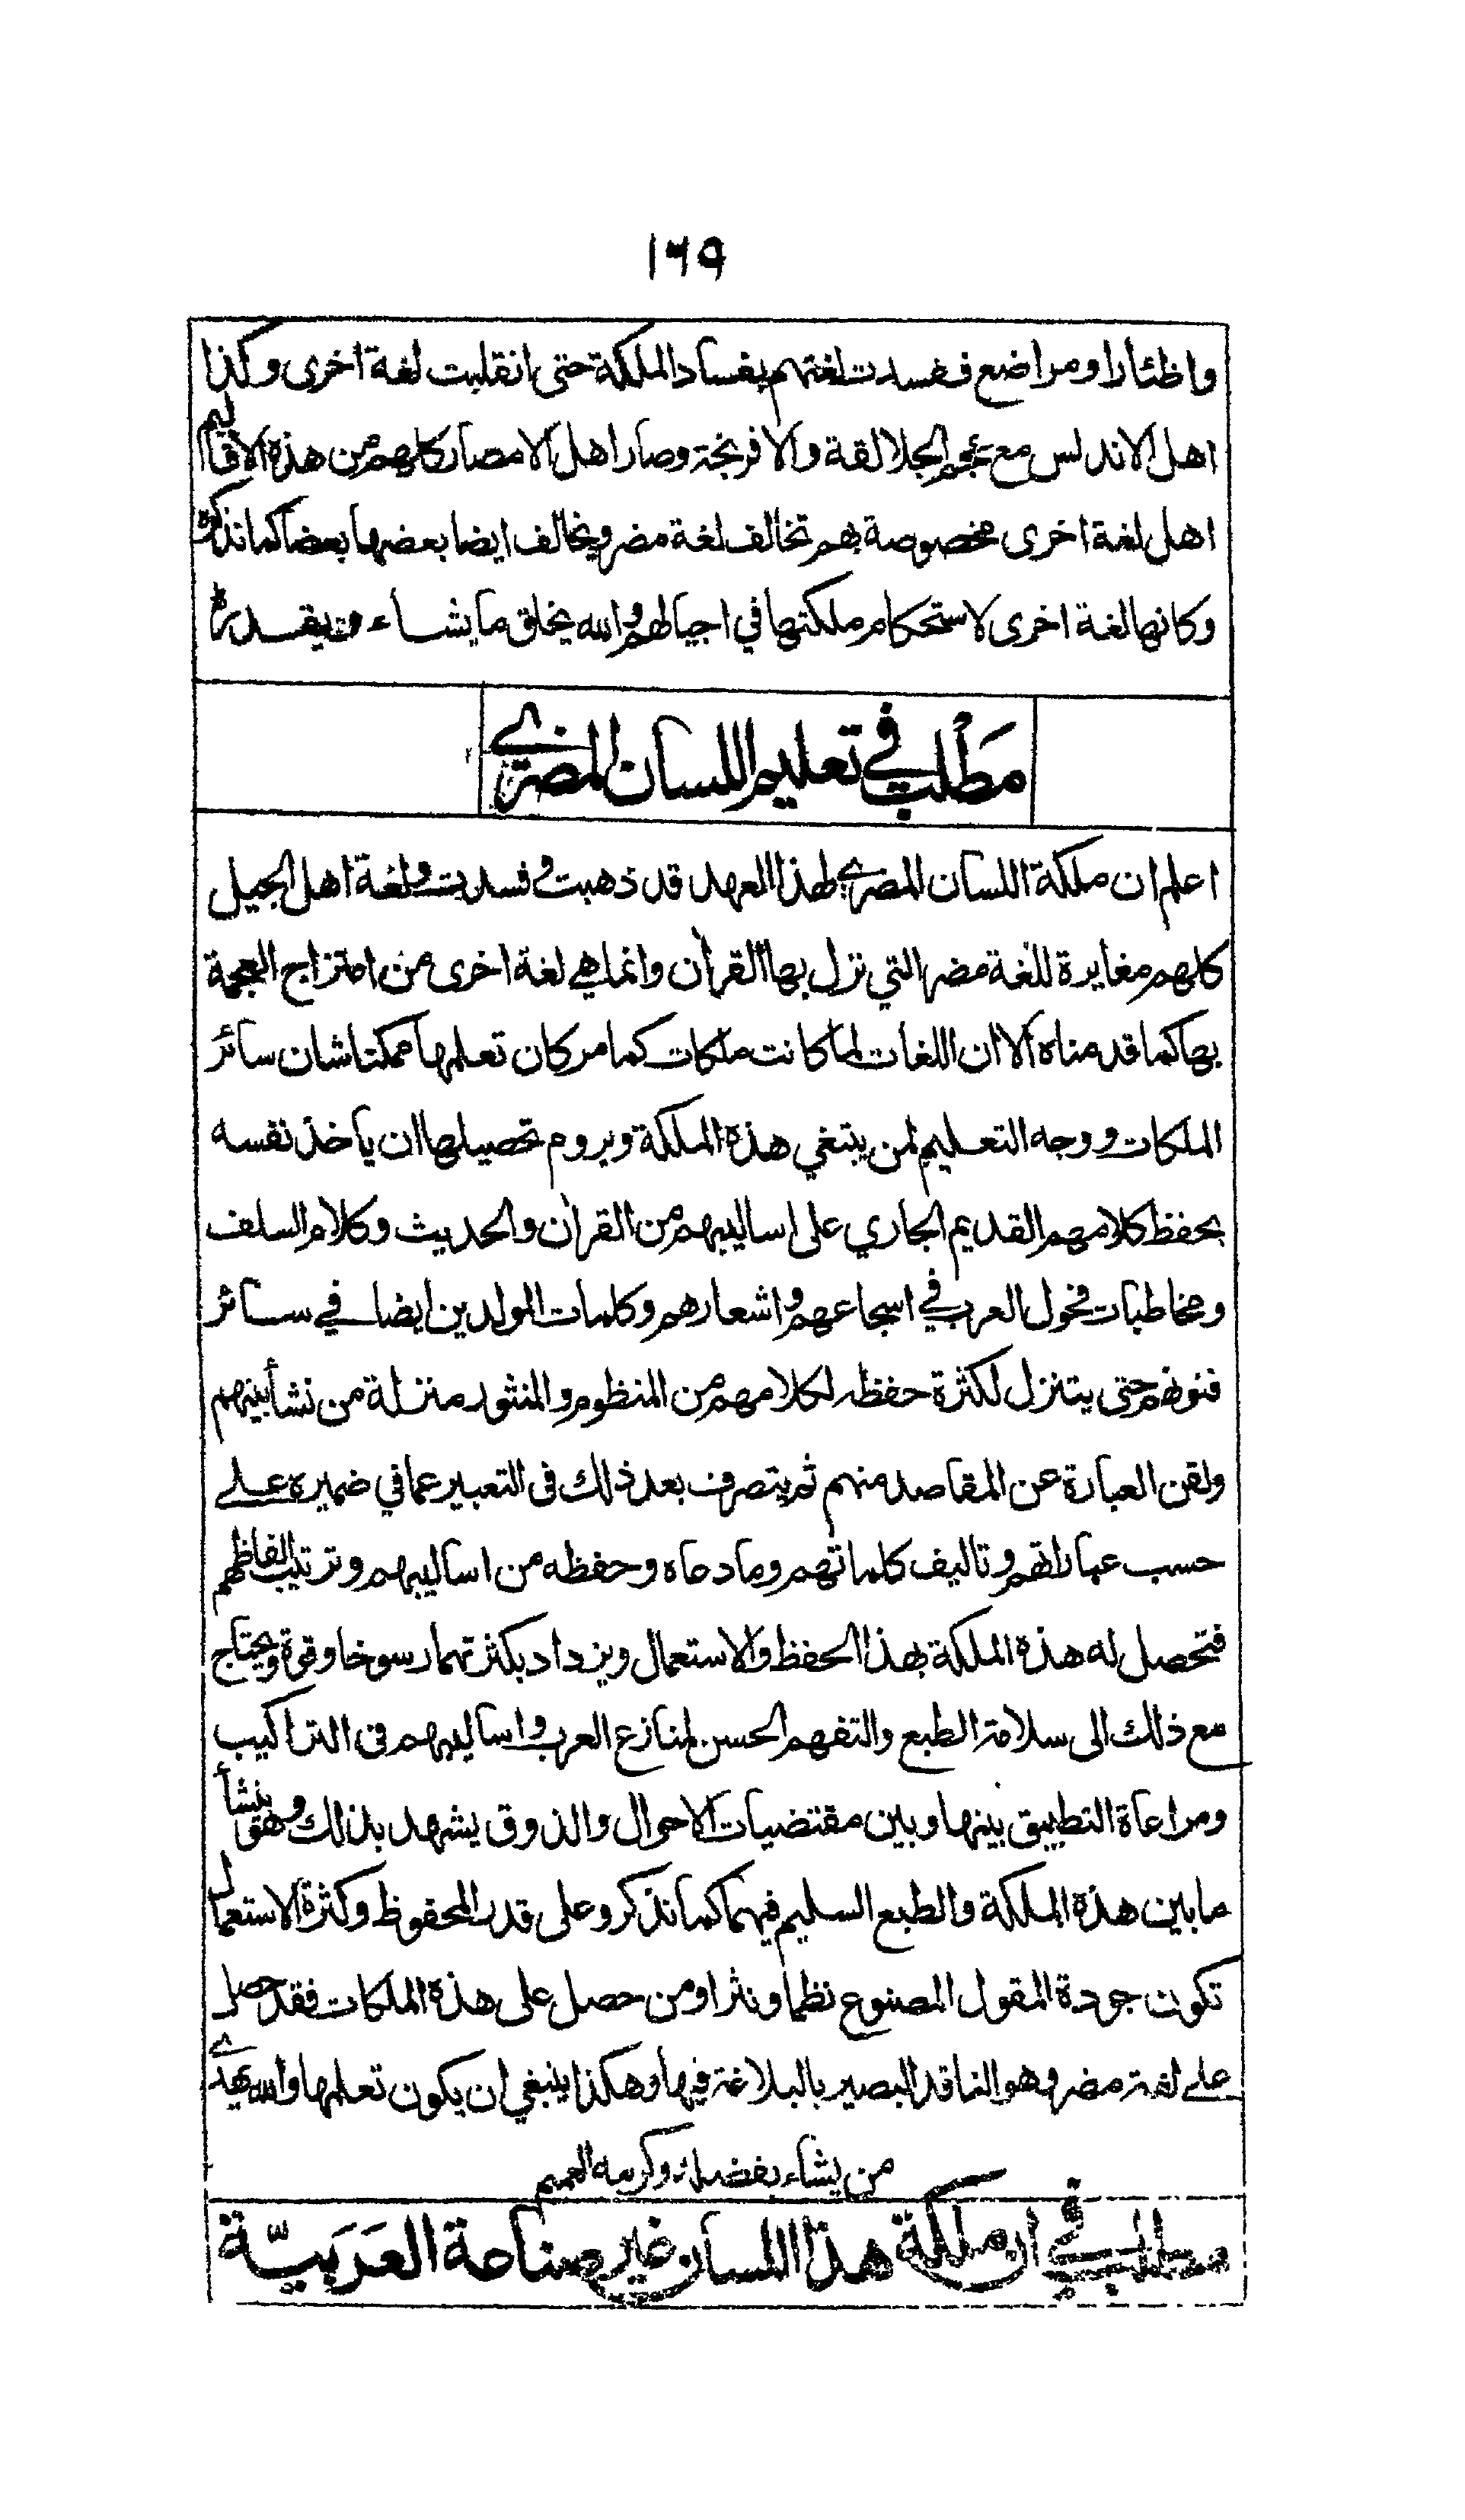 ١٦٩
واظئارا ومراضع ففسدت لغتهم بفساد الملكة حتى انقلبت لغة اخرى وكذا
اهل الاندلس مع عجم الجلالقة والافرنجة وصار اهل الامصار كلهم من هذه الاقاليم
اهل لغة اخرى مخصوصة بهم تخالف لغة مضر ويخالف ايضا بعضها بعضا كما نذكره
وكانها لغة اخرى لاستحكام ملكتها في اجيالهم والله يخلق ما يشاء ويقدر
مَطْلب في تعليم اللسان المضري
اعلم ان ملكة اللسان المضري لهذا العهد قد ذهبت وفسدت ولغة اهل الجيل
كلهم مغايرة للغة مضر التي نزل بها القرأن وانما هي لغة اخرى من امتزاج العجمة
بها كما قدمناه الا ان اللغات لما كانت ملكات كما مر كان تعلمها ممكنا شان سائر
الملكات ووجه التعليم لمن يبتغي هذه الملكة ويروم تحصيلها ان ياخذ نفسه
بحفظ كلامهم القديم الجاري على اساليبهم من القرأن والحديث وكلام السلف
ومخاطبات فحول العرب في اسجاعهم واشعارهم وكلمات المولدين ايضا في سائر
فنونهم حتى يتنزل لكثرة حفظه لكلامهم من المنظوم والمنثور منزلة من نشأ بينهم
ولقن العبارة عن المقاصد منهم ثم يتصرف بعد ذلك في التعبير عما في ضميره على
حسب عباراتهم وتاليف كلماتهم وما وعاه وحفظه من اساليبهم وترتيب الفاظهم
فتحصل له هذه الملكة بهذا الحفظ والاستعمال ويزداد بكثرتهما رسوخا وقوة ويحتاج
مع ذلك الى سلامة الطبع والتفهم الحسن لمنازع العرب واساليبهم في التراكيب
ومراعاة التطبيق بينها وبين مقتضيات الاحوال والذوق يشهد بذلك وهو ينشأ
ما بين هذه الملكة والطبع السليم فيهما كما نذكر وعلى قدر المحفوظ وكثرة الاستعمال
تكون جودة المقول المصنوع نظما ونثرا ومن حصل على هذه الملكات فقد حصل
على لغة مضر وهو الناقد البصير بالبلاغة فيها وهكذا ينبغي ان يكون تعلمها والله يهدي
من يشاء بفضله وكرمه العميم
مطلب في ان ملكة هذا اللسان غير صناعة العَرَبَيّة